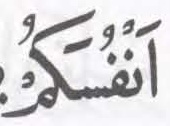 اَنْفُسَكُمْ